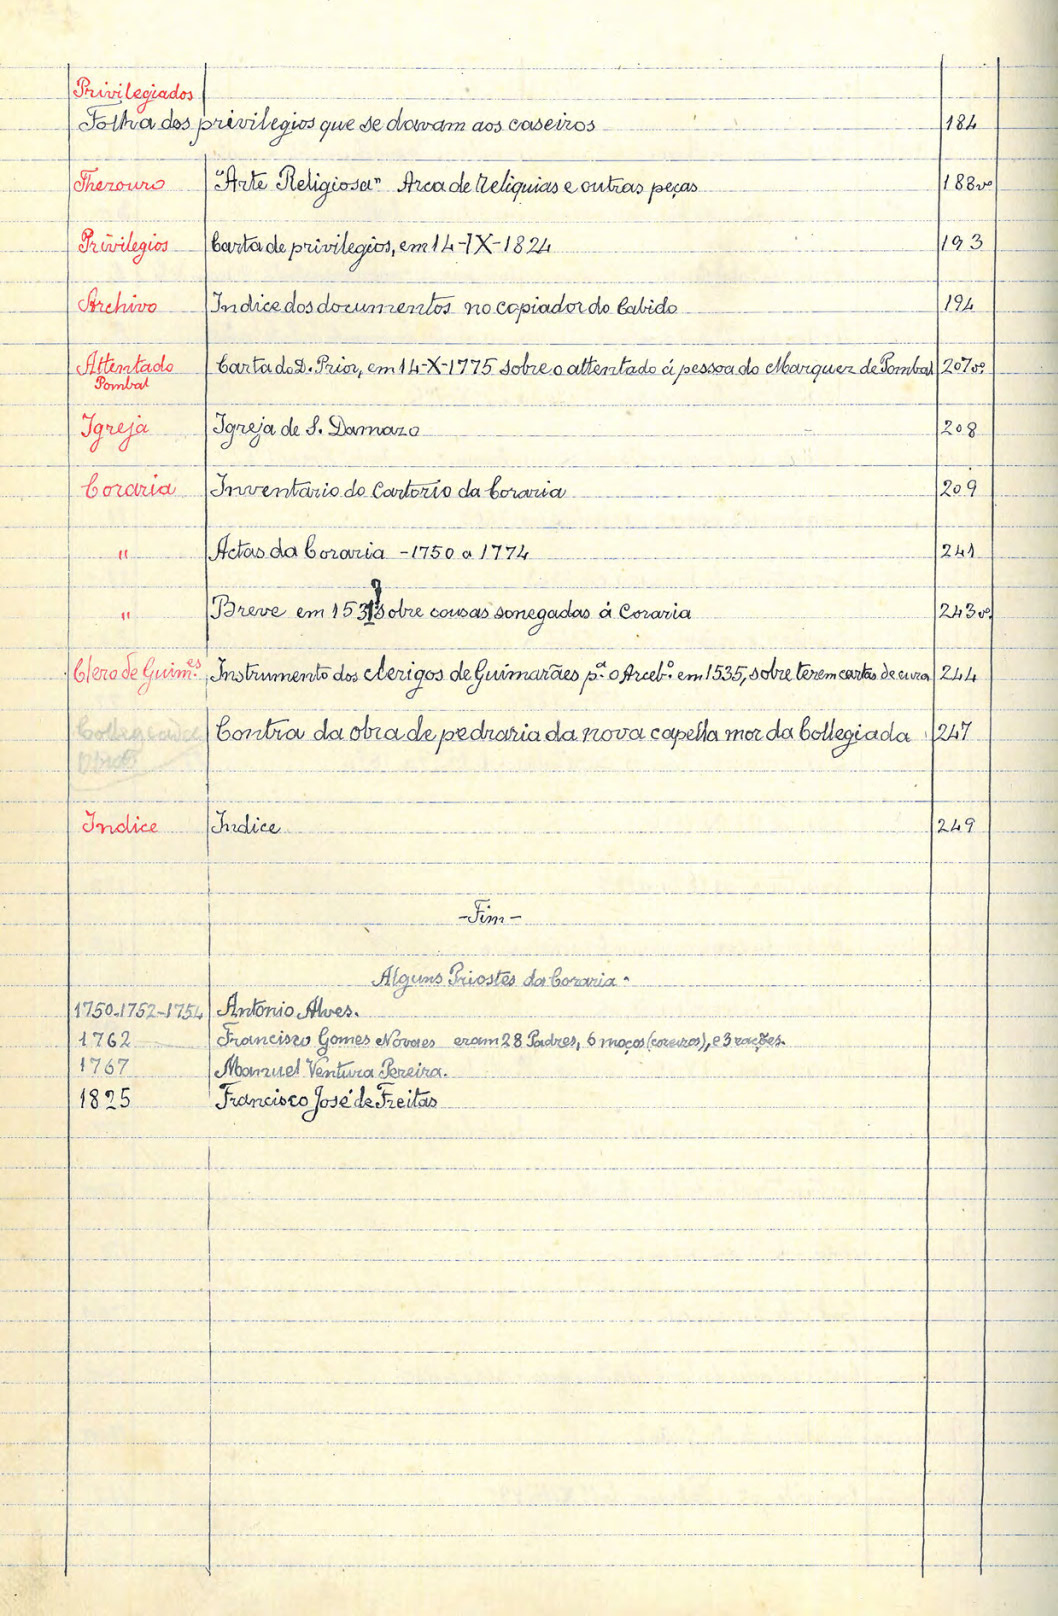 Privilegiados
Folha dos privilegios que se davam aos caseiros 184
Thezouro "Arte Religiosa" Arca de Reliquias e outras peças 188vº
Privilegios Carta de privilegios, em 14-IX-1824 193
Archivo Indice dos documentos no copiador do Cabido 194
Attentado Carta do D. Prior, em 14-X-1775 sobre o attentado á pessoa do Marquez de Pombal 207vº
Pombal
Igreja Igreja de S. Damazo 208
Coraria Inventario do Cartorio da Coraria 209
" Actas da Coraria - 1750 a 1774 241
" Breve em 153 sobre cousas sonegadas á Coraria 243vº
Clero de Guim.es Instrumento dos clerigos de Guimarães p.ª o Arceb.º em 1535, sobre terem cartas de cura 244
Collegiada Contra da obra de pedraria da nova capella mor da Collegiada 247
Obras
Indice Indice 249
-Fim-
Alguns Priostes da Coraria -
1750-1752-1754 Antonio Alves.
1762 Francisco Gomes Novaes eram 28 Padres, 6 moços (coreiros), e 3 rações.
1767 Manuel Ventura Pereira.
1825 Francisco José de Freitas